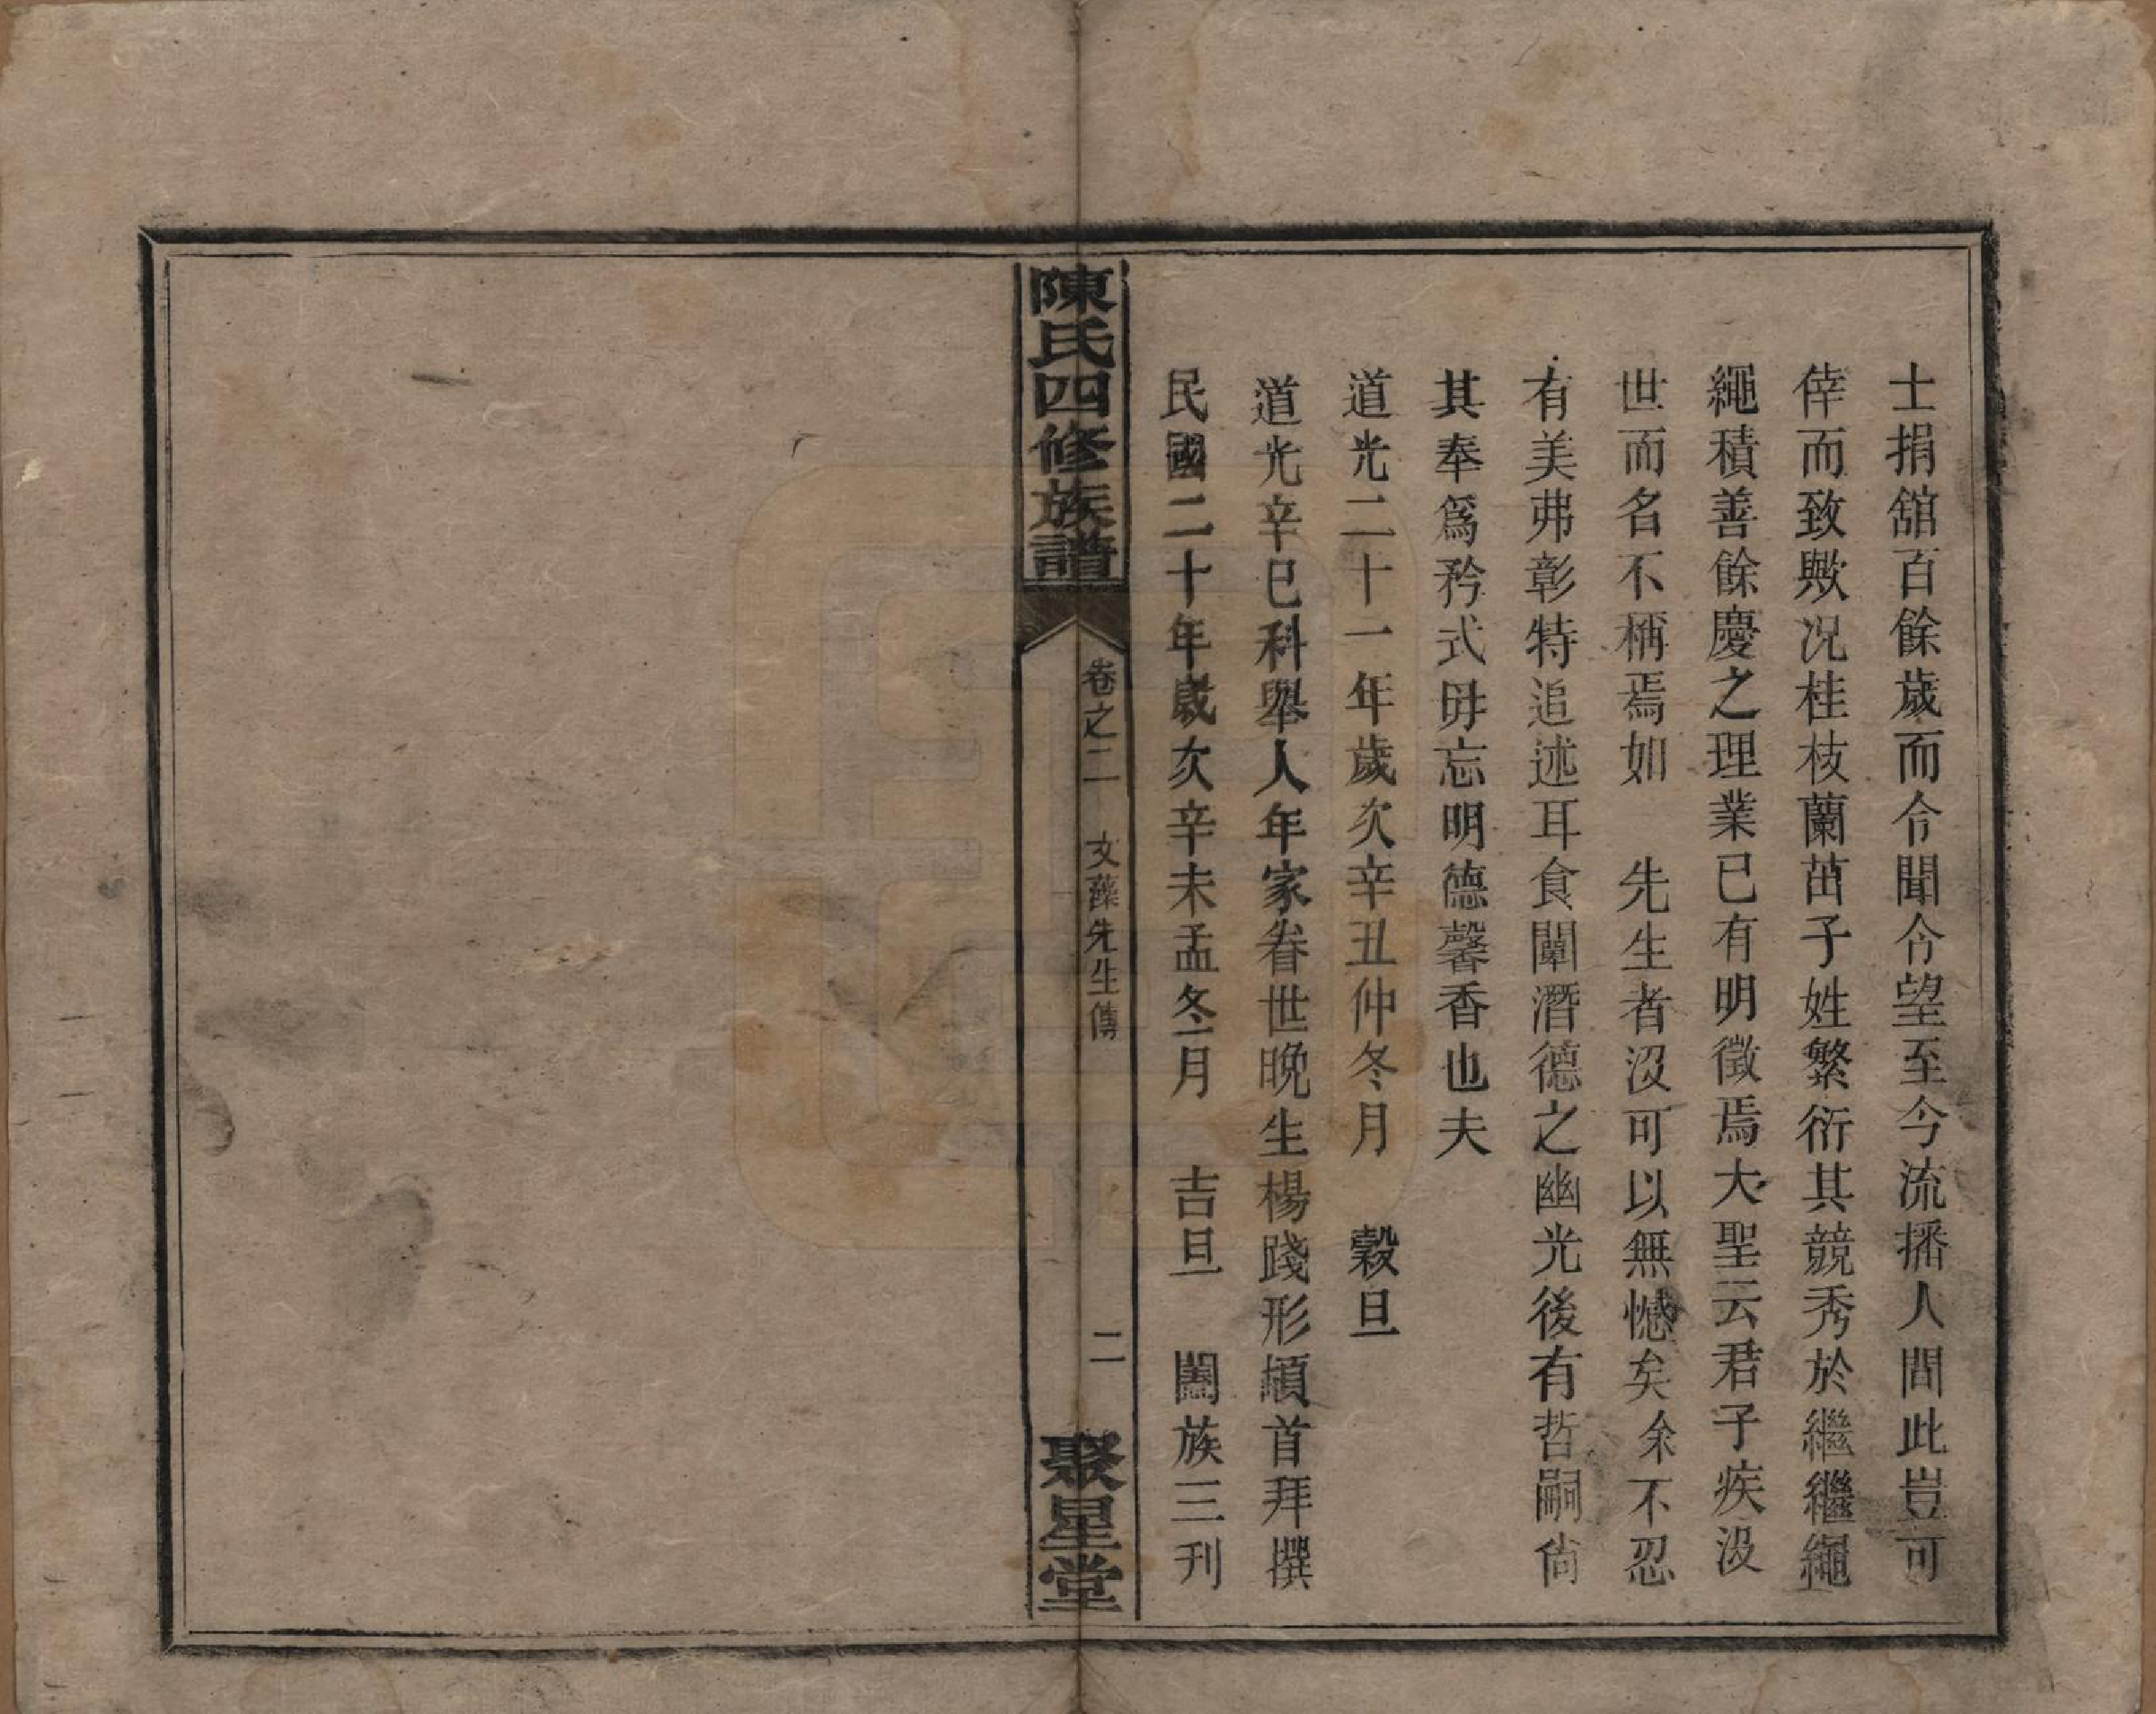 士捐舘百餘歲而令聞令望至今流播人間此豈可
倖而致歟况桂枝蘭茁子姓繁衍其競秀於繼繼繩
繩積善餘慶之理業已有明徵焉大聖云君子疾沒
世而名不稱焉如　先生者沒可以無憾矣余不忍
有美弗彰特追述耳食闡潛德之幽光後有哲嗣尙
其奉爲矜式毋忘明德馨香也夫
道光二十一年歲次辛丑仲冬月　穀旦
道光辛巳科舉人年家眷世晚生楊踐形頓首拜撰
民國二十年歲次辛未孟冬月　吉旦　闔族三刊
陳氏四修族譜
卷之二　文藻先生傳　二
聚星堂